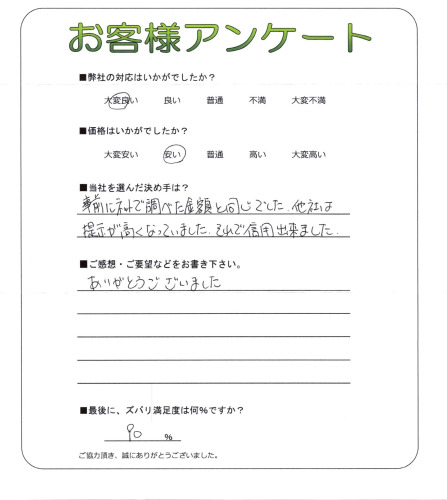 お客様アンケート
■弊社の対応はいかがでしたか?
大変良い 良い 普通 不満 大変不満
■価格はいかがでしたか?
大変安い 安い 普通 高い 大変高い
■当社を選んだ決め手は?
事前にネットで調べた金額と同じでした。他社は
提示が高くなっていました。それで信用出来ました。
■ご感想・ご要望などをお書き下さい。
ありがとうございました
■最後に、ズバリ満足度は何%ですか?
90 %
ご協力頂き、誠にありがとうございました。